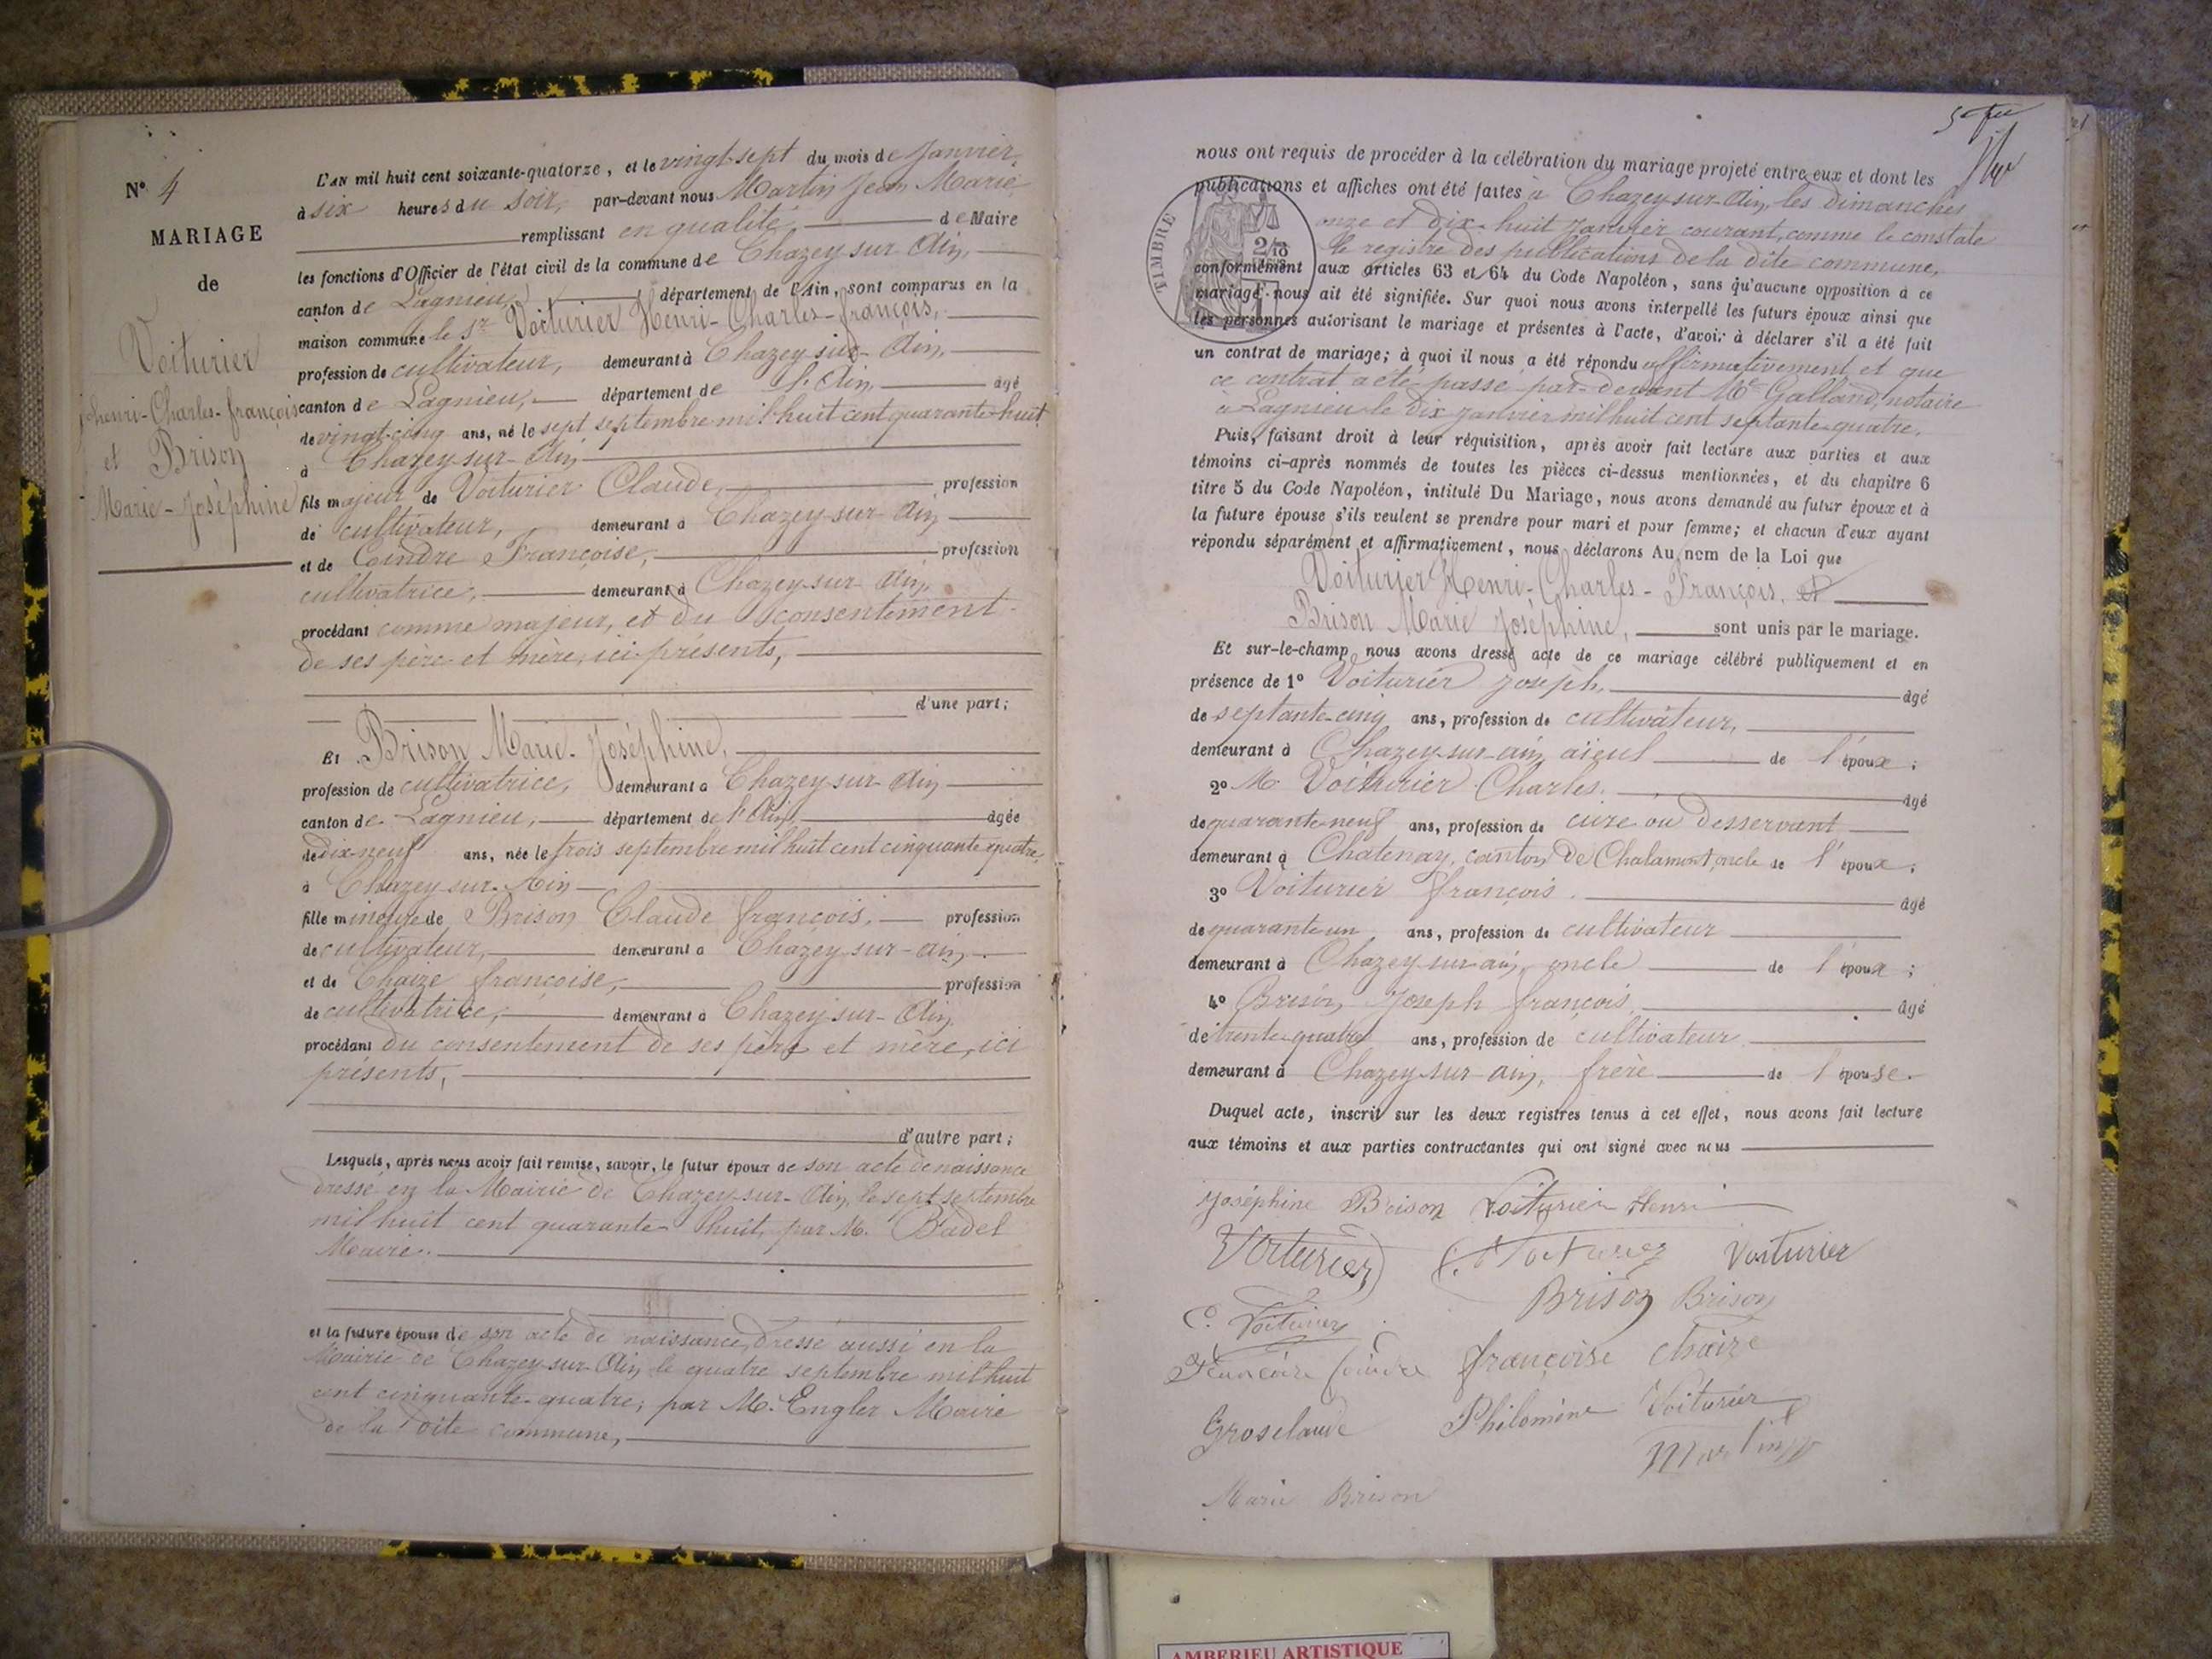 N° 4
MARIAGE
de
Voiturier
henri-Charles-françois
et Brison
Marie-Joséphine
L'AN mil huit cent soixante-quatorze, et le vingt-sept du mois de Janvier,
à six heures du soir, par-devant nous Martin Jean Marie
remplissant en qualité de Maire
les fonctions d'Officier de l'état civil de la commune de Chazey-sur-Ain,
canton de Lagnieu, département de l'Ain, sont comparus en la
maison commune le Sr Voiturier Henri-Charles-françois,
profession de cultivateur, demeurant à Chazey-sur-Ain,
canton de Lagnieu, département de l'Ain âgé
de vingt-cinq ans, né le sept septembre mil huit cent quarante-huit
à Chazey-sur-Ain
fils majeur de Voiturier Claude, profession
de cultivateur, demeurant à Chazey-sur-Ain
et de Coindre Françoise, profession
cultivatrice, demeurant à Chazey-sur-Ain,
procédant comme majeur, et du consentement
de ses père et mère, ici présents,
d'une part;
Et Brison Marie-Joséphine,
profession de cultivatrice, demeurant à Chazey-sur-Ain
canton de Lagnieu, département de l'Ain, âgée
de dix-neuf ans, née le trois septembre mil huit cent cinquante-quatre,
à Chazey-sur-Ain
fille mineure de Brison Claude françois, profession
de cultivateur, demeurant à Chazey-sur-ain,
et de Chaize françoise, profession
de cultivatrice, demeurant à Chazey-sur-Ain,
procédant du consentement de ses père et mère, ici
présents,
d'autre part;
Lesquels, après nous avoir fait remise, savoir, le futur époux de son acte de naissance
dressé en la Mairie de Chazey-sur-Ain, le sept septembre
mil huit cent quarante-huit, par M. Badel
Maire.
et la future épouse de son acte de naissance, dressé aussi en la
Mairie de Chazey-sur-Ain, le quatre septembre mil huit
cent cinquante-quatre, par M. Engler Maire
de la dite commune,
5e
nous ont requis de procéder à la célébration du mariage projeté entre eux et dont les
publications et affiches ont été faites à Chazey-sur-Ain, les dimanches
onze et dix-huit Janvier courant, comme le constate
le registre des publications de la dite commune,
TIMBRE
2/10
conformément aux articles 63 et 64 du Code Napoléon, sans qu'aucune opposition à ce
mariage nous ait été signifiée. Sur quoi nous avons interpellé les futurs époux ainsi que
les personnes autorisant le mariage et présentes à l'acte, d'avoir à déclarer s'il a été fait
un contrat de mariage; à quoi il nous a été répondu affirmativement, et que
ce contrat a été passé par-devant Me Galland, notaire
à Lagnieu le dix janvier mil huit cent septante-quatre.
Puis, faisant droit à leur réquisition, après avoir fait lecture aux parties et aux
témoins ci-après nommés de toutes les pièces ci-dessus mentionnées, et du chapitre 6
titre 5 du Code Napoléon, intitulé Du Mariage, nous avons demandé au futur époux et à
la future épouse s'ils veulent se prendre pour mari et pour femme; et chacun d'eux ayant
répondu séparément et affirmativement, nous déclarons Au nom de la Loi que
Voiturier Henri-Charles-François, et
Brison Marie Joséphine, sont unis par le mariage.
Et sur-le-champ nous avons dressé acte de ce mariage célébré publiquement et en
présence de 1° Voiturier Joseph, âgé
de septante-cinq ans, profession de cultivateur,
demeurant à Chazey-sur-ain, aïeul de l'époux;
2° M. Voiturier Charles. âgé
de quarante-neuf ans, profession de curé ou desservant
demeurant à Chatenay, canton de Chalamont, oncle de l'époux;
3° Voiturier françois. âgé
de quarante-un ans, profession de cultivateur
demeurant à Chazey-sur-ain, oncle de l'époux;
4° Brison, Joseph françois, âgé
de trente-quatre ans, profession de cultivateur
demeurant à Chazey-sur-ain, frère de l'épouse.
Duquel acte, inscrit sur les deux registres tenus à cet effet, nous avons fait lecture
aux témoins et aux parties contractantes qui ont signé avec nous
Joséphine Brison Voiturier Henri
Voiturier C. Voiturier Voiturier
Brison Brison
C. Voiturier
Françoise Coindre françoise chaize
Groselaude Philomène Voiturier
Martin
Marie Brison
AMBERIEU ARTISTIQUE